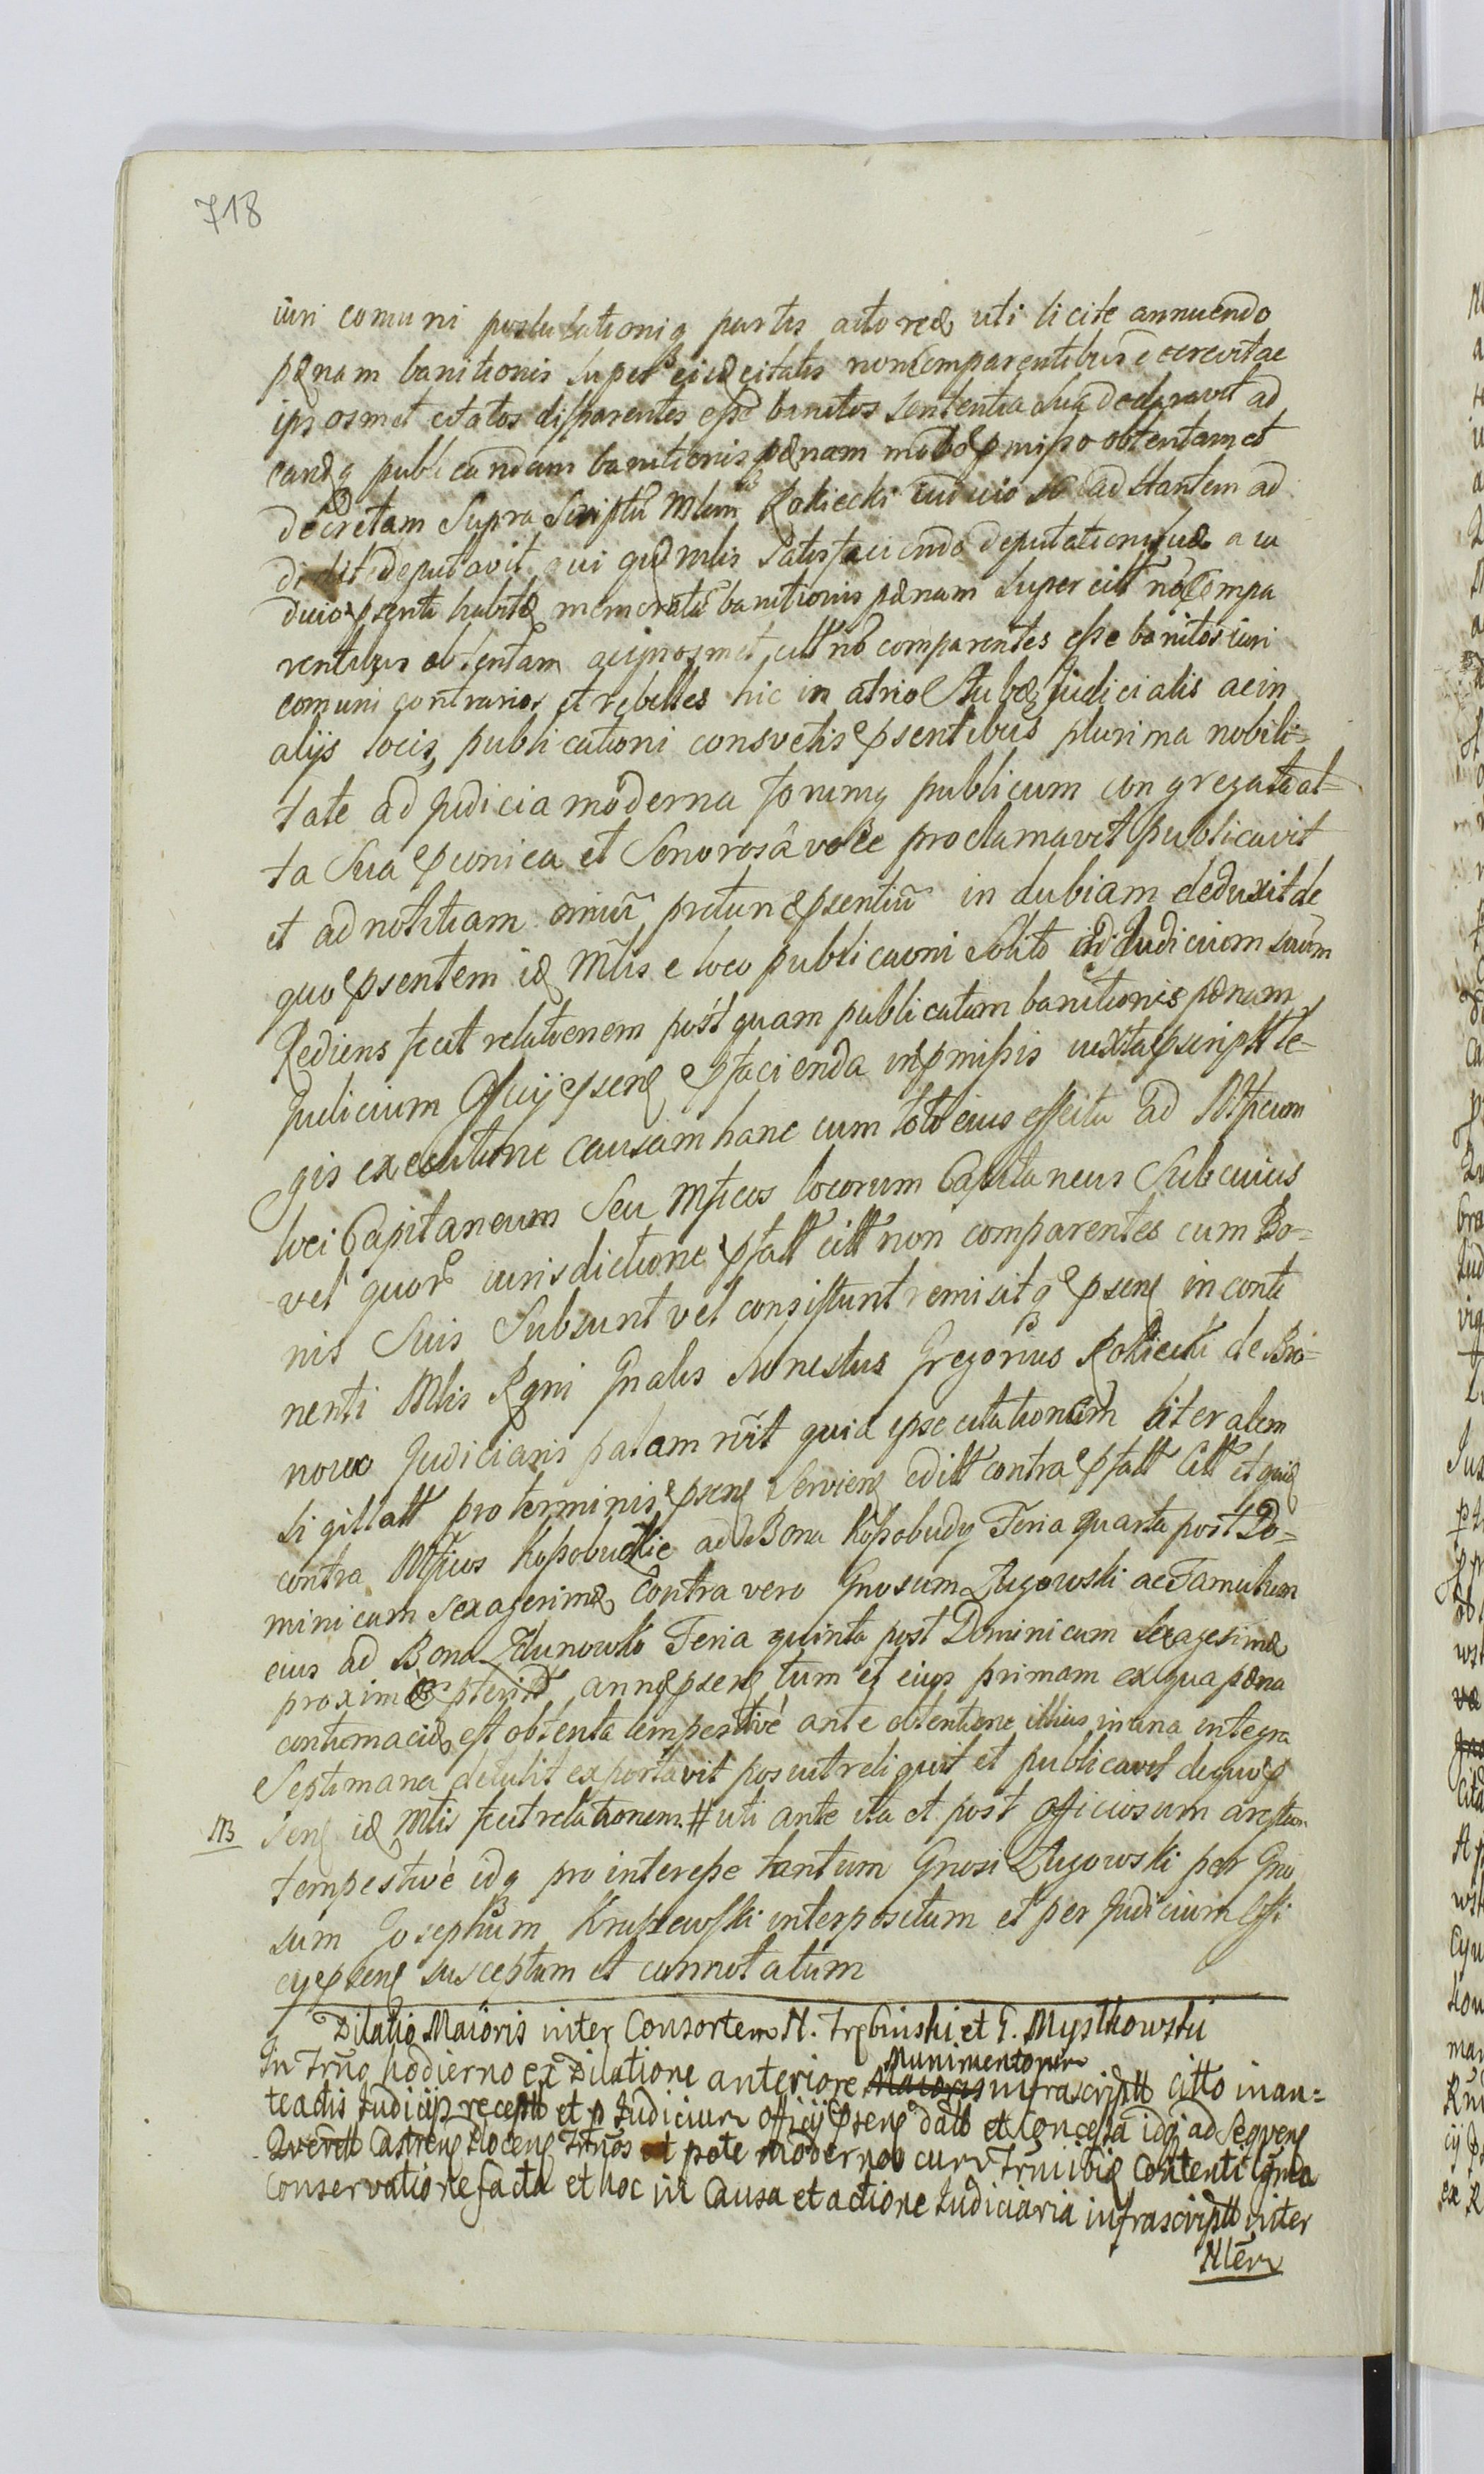 718
iuri comuni postulationiq partis actoreæ uti licite annuendo
pænam banitionis super eisdē citatis non comparentibus decrevit ac
ipsosmet citatos disparentes esse banitos sententia sua declaravit ad
eandēq publicandam banitionis pænam modo pmisso obtentam et
decretam Supra Scriptū Mlem Rokiecki iudicio so adstantem ad
didit deputavit qui quidem Mlis satisfaciendo deputationi suæ a iu
dicio psenti habitæ memoratā banitionis pænam super citt nō compa
rentibus obtentam ac ipsosmet citt nō comparentes esse banitos iuri
comuni contrarios et rebelles hic in atrio stubæ judicialis ac in
alijs locis publicationi consvetis psentibus plurima nobili=
tate ad judicia moderna forumq publicum congregata al=
ta sua pconica et sonorosâ voce proclamavit publicavit
et ad notitiam omniū protunc psentiū in dubiam deduxit de
quo psentem idē Mlis e loco publicaoni solito ad Iudicium suūm
Rediens fecit relationem post quam publicatam banitionis pænam
Judicium Officij psens p facienda in pmissis iuxta pscriptt le-
gis executione causam hanc cum toto eius effectu ad Mfficum
loci Capitaneum seu Mfficos locorum Capitaneus sub cuius
vel quorū iurisdictione pfatt citt non comparentes cum Bo=
nis suis subsunt vel consistunt remisit q psens in conti
nenti Mlis Rgni Gnalis honestus Gregorius Rokiecki de Bro=
nowo Judiciaris palam rūit quia ipse citationem literalem
sigillatt pro terminis psens serviens editt contra pfatt citt et quidē
contra Mfficos Kossobudzkie ad Bona Kossobudy Feria quarta post Do=
minicam sexagesimæ contra vero Gnosum Zugowski ac Famulum
eius ad Bona Zdunowko Feria quinta post Dominicam sexagesimæ
proximē pteritt anni psens tum et eius primam ex qua pæna
contumaciæ est obtenta tempestivé ante obtentione illius in una integra
septimana detulit exportavit posuit reliquit et publicavit de quo p
NB sens idē Mlis fecit relationem # uti ante ita et post officiosum arestum
tempestivé idq pro interesse tantum Gnosi Zugowski per Gno
sum Josephum Kruszewski interpositum et per Judicium Offi
cy psens susceptum et connotatum
Dilatio Maioris inter Consortem N. Trębinski et G. Mystkowski
In Trūo hodierno ex Dilatione anteriore Munimentorum infrascriptt citto in an=
teactis Iudicijs receptt et p Iudicium officij psens datt et concessa idq ad sequens
Querett Castrens Plocens Trūos ut pote modernos cum Trūi ibidē contenti
conservatione facta et hoc in Causa et actione Iudiciaria infrascriptt inter
Nlem